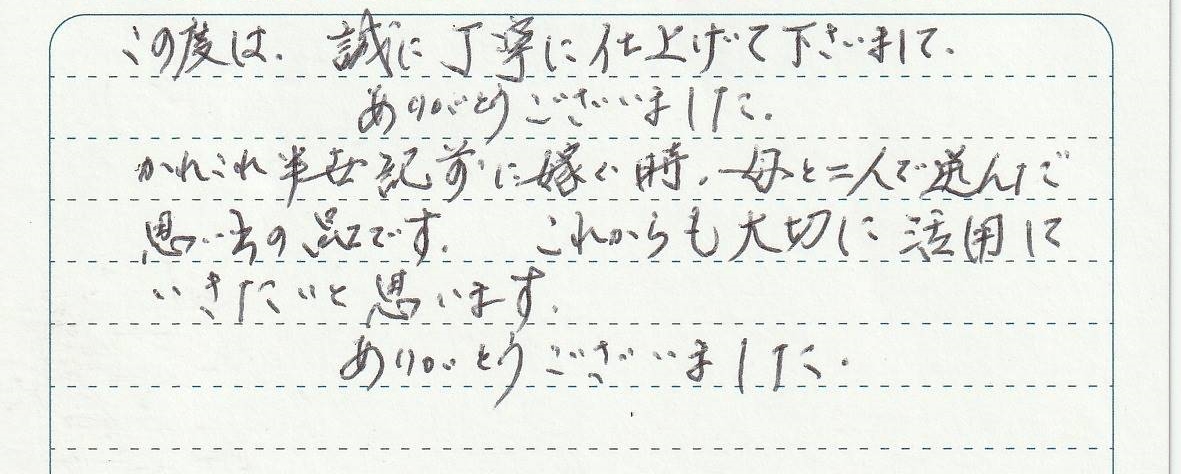 この度は、誠に丁寧に仕上げて下さいまして、
ありがとうございました。
かれこれ半世紀前に嫁ぐ時、母と二人で選んだ
思い出の品です。 これからも大切に活用して
いきたいと思います。
ありがとうございました。